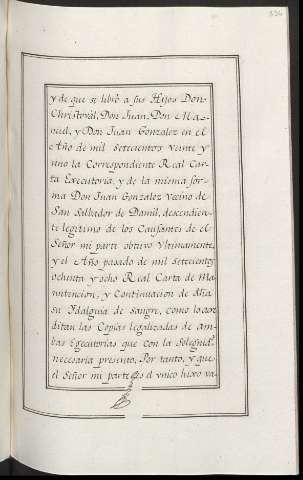 y de que se libró a sus Hijos Don
Christovál, Don Juan, Don Ma-
nuel, y Don Juan Gonzalez en el
Año de mil Setecientos veinte y
uno la Correspondiente Real Car
ta Executoria, y de la misma for-
ma Don Juan Gonzalez vecino de
San Salbador de Damil, descendien-
te legitimo de los Causantes de el
Señor mi parte obtuvo Vltimamente,
y el Año pasado de mil Setecientos
ochenta y ocho Real Carta de Ma-
nutencion, y Continuacion de dha
su Ydalguia de Sangre, como lo acre
ditan las Copias legalizadas de am-
bas Egecutorias que con la Solegnidᵈ
necesaria presento. Por tanto, y que
el Señor mi parte es el vnico hixo va-